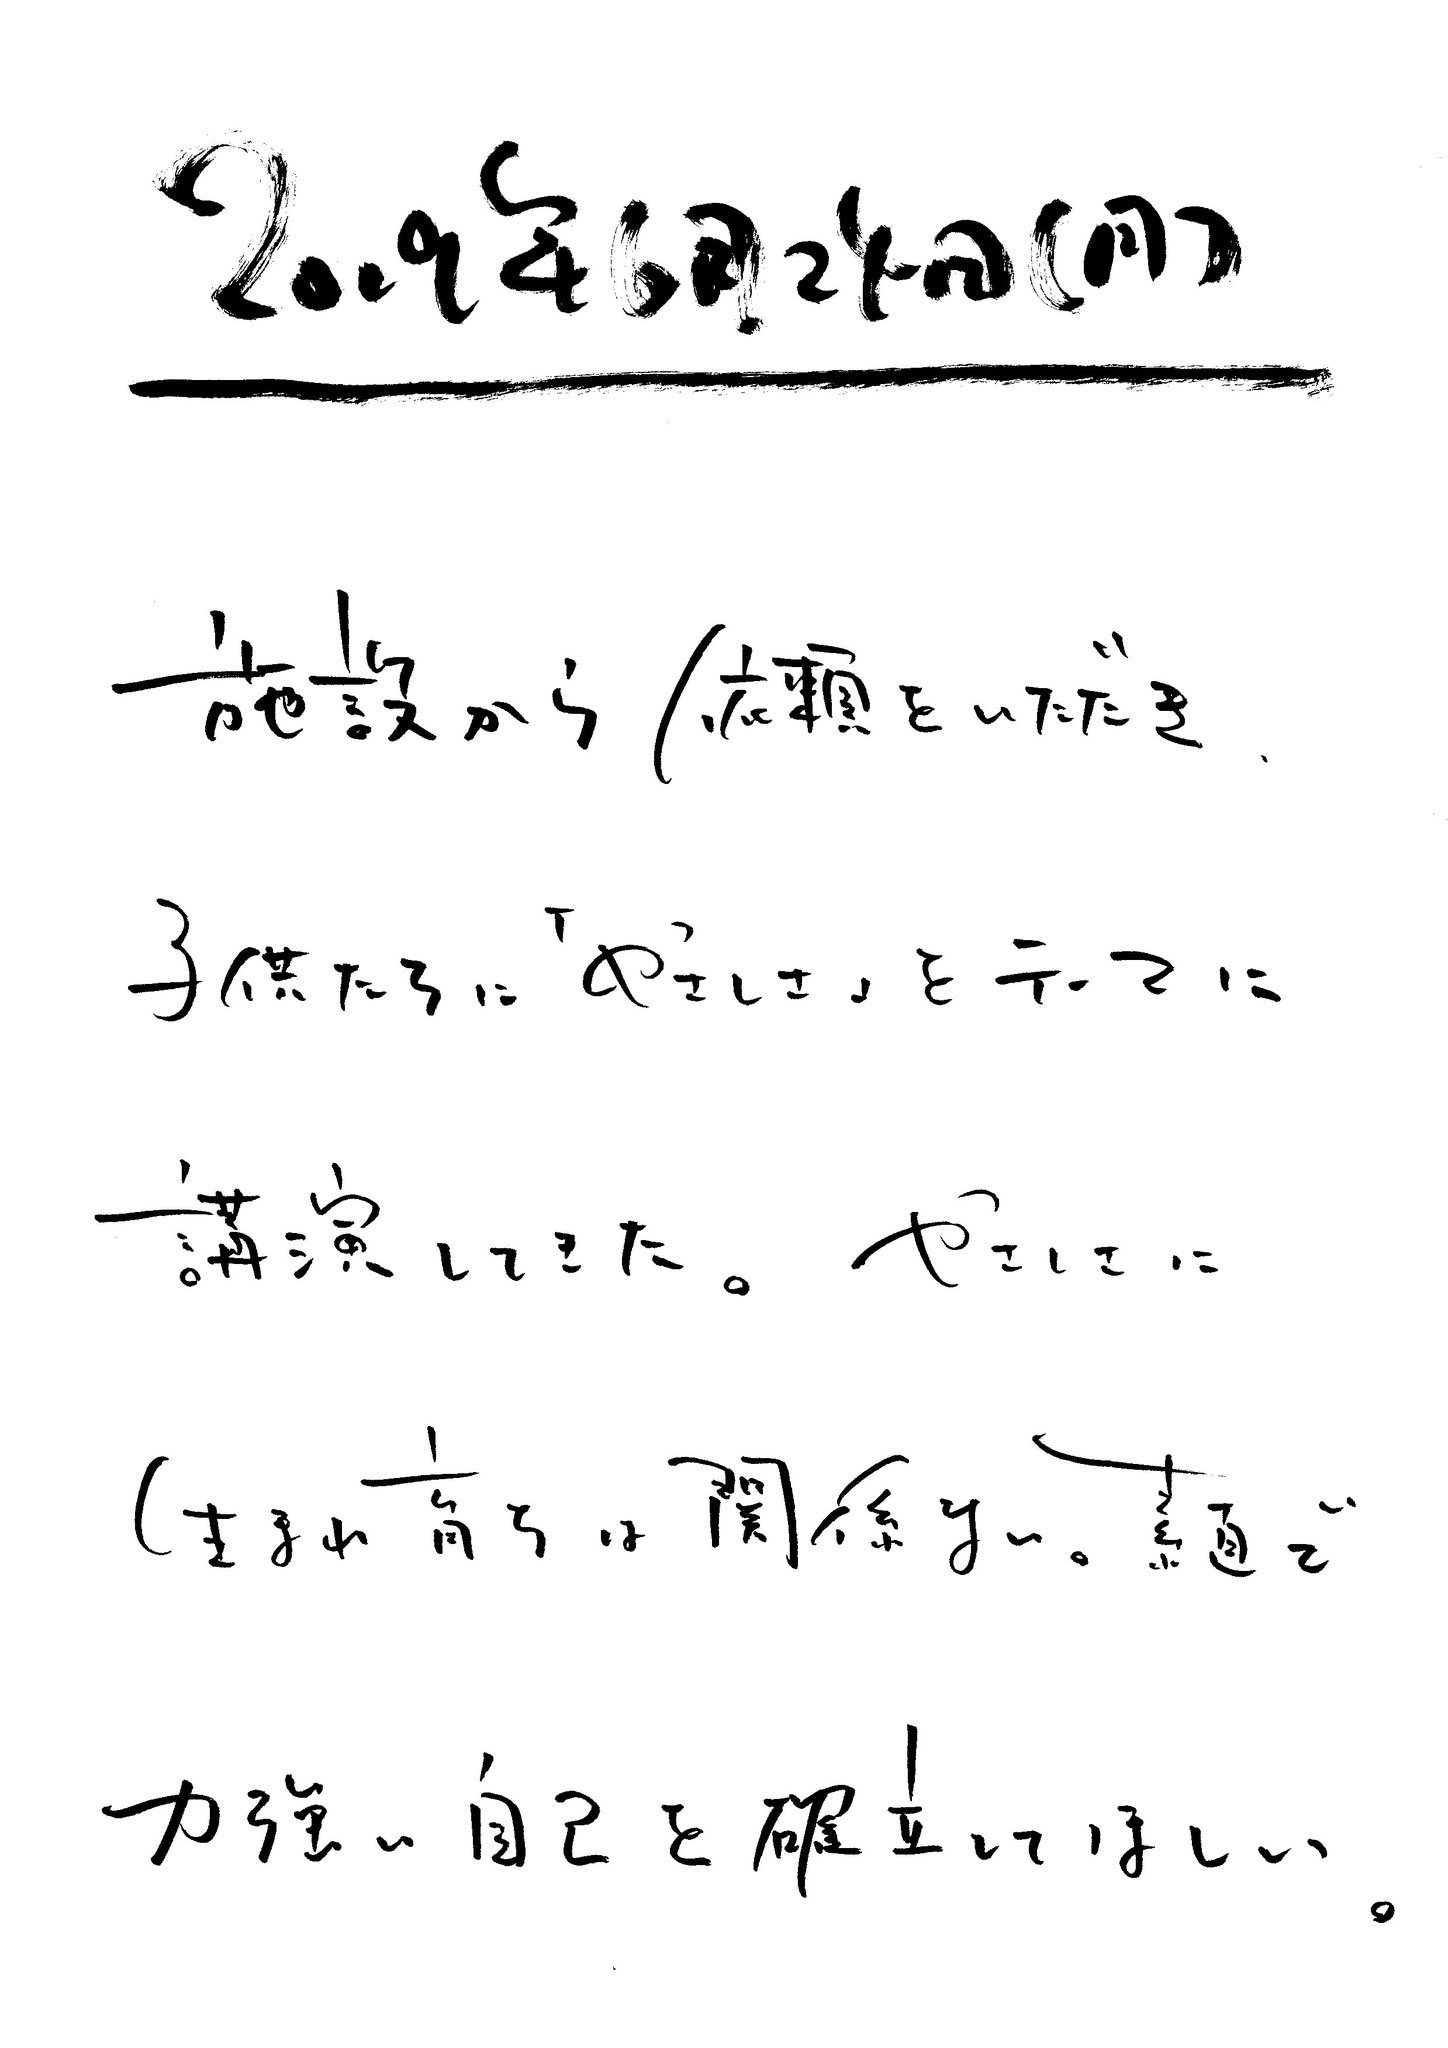 2019年6月24日(月)
施設から依頼をいただき、
子供たちに「やさしさ」をテーマに
講演してきた。やさしさに
生まれ育ちは関係ない。素直で
力強い自己を確立してほしい
。